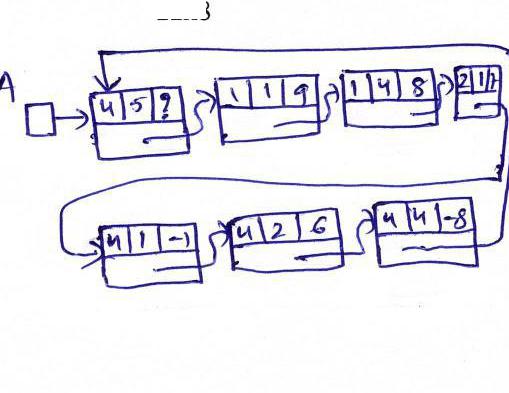 ----3
A
4 5 ? 1 1 9 1 4 8 2 1 7
4 1 -1 4 2 6 4 4 -8